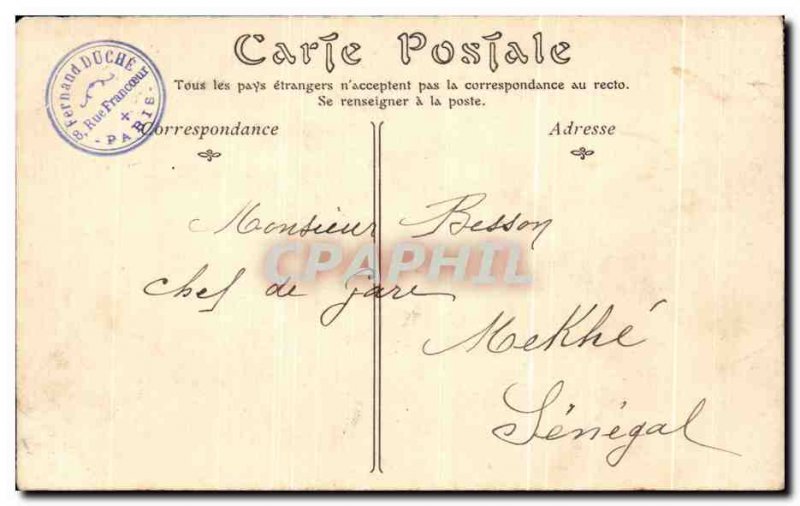 Carte Postale
Tous les pays étrangers n'acceptent pas la correspondance au recto.
Se renseigner à la poste.
Fernand DUCHÉ
8, Rue Francœur
- PARIS -
Correspondance
Adresse
Monsieur Besson
Chef de Gare
CPAPHIL
MeKhé
Sénégal